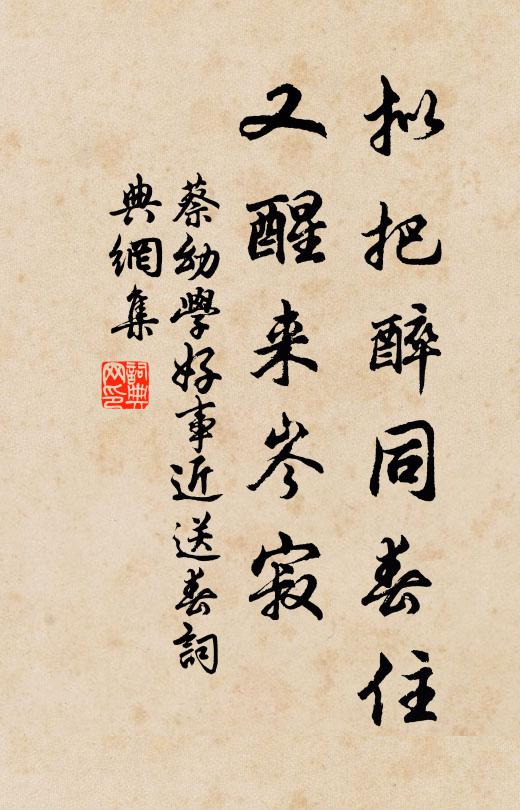 拟把醉同春住
又醒来岑寂
蔡幼學好事近送春詞
典網集
詞典網印